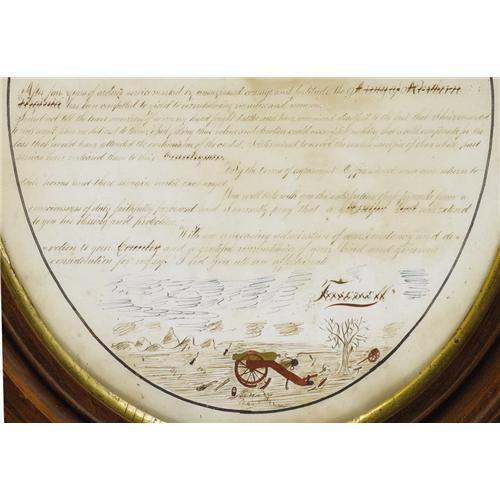 After four years of arduous service marked by unsurpassed courage and fortitude the Army of Northern
Virginia has been compelled to yield to overwhelming numbers and resources.
I need not tell the brave survivors of so many hard fought battles who have remained steadfast to the last that I have consented
to this result from no distrust of them; but
loss that would have attended the continuance of the contest I determined to avoid the useless sacrifice of those whose past
services have endeared them to their Countrymen.
By the terms of agreement Officers and men can return to
their homes and there remain until exchanged.
You will take with you the satisfaction that proceeds from a
consciousness of duty faithfully performed and I earnestly pray that a Merciful God will extend
to you his blessing and protection.
With an unceasing admiration of your constancy and de-
votion to your Country and a grateful remembrance of your kind and generous
consideration for myself I bid you all an affectionate
Farewell